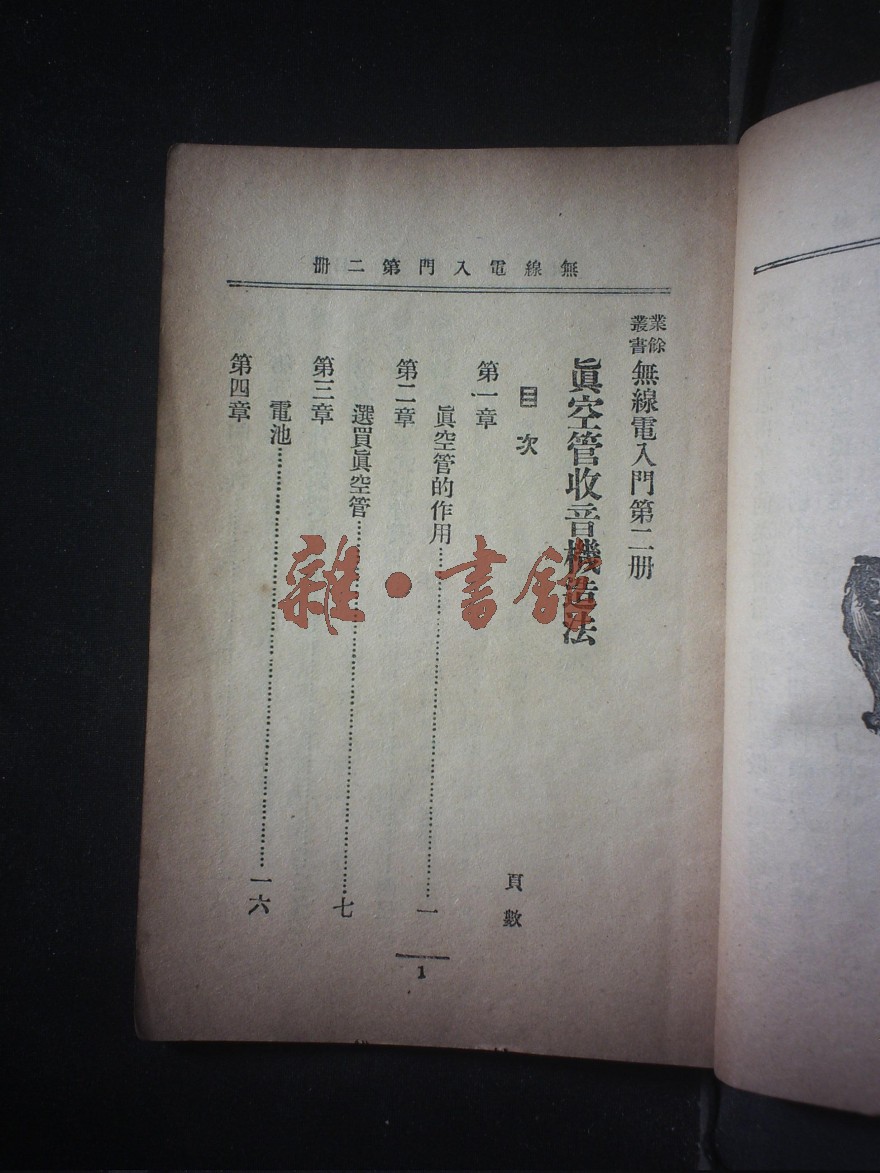 無線電入門第二冊
業餘叢書 無線電入門第二册
眞空管收音機造法
目次
頁數
第一章
眞空管的作用……一
第二章
選買眞空管……七
第三章
電池……一六
第四章
1
雜·書館